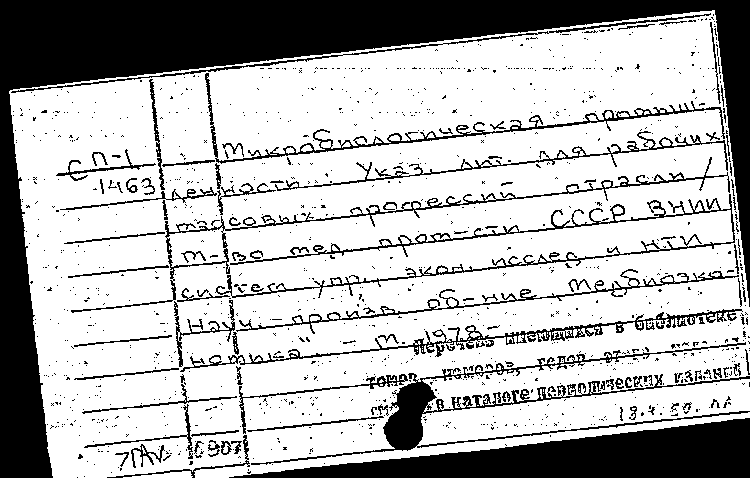 СП-1
1463
Микробиологическая промыш-
ленность: Указ. лит. для рабочих
массовых профессий отрасли /
М-во мед. пром-сти СССР. ВНИИ
систем упр., экон. исслед. и НТИ,
Науч.-произв. об-ние "Медбиоэко-
номика". - М., 1978-
Перечень имеющихся в библиотеке
томов, номеров, годов
в каталоге периодических изданий
6907